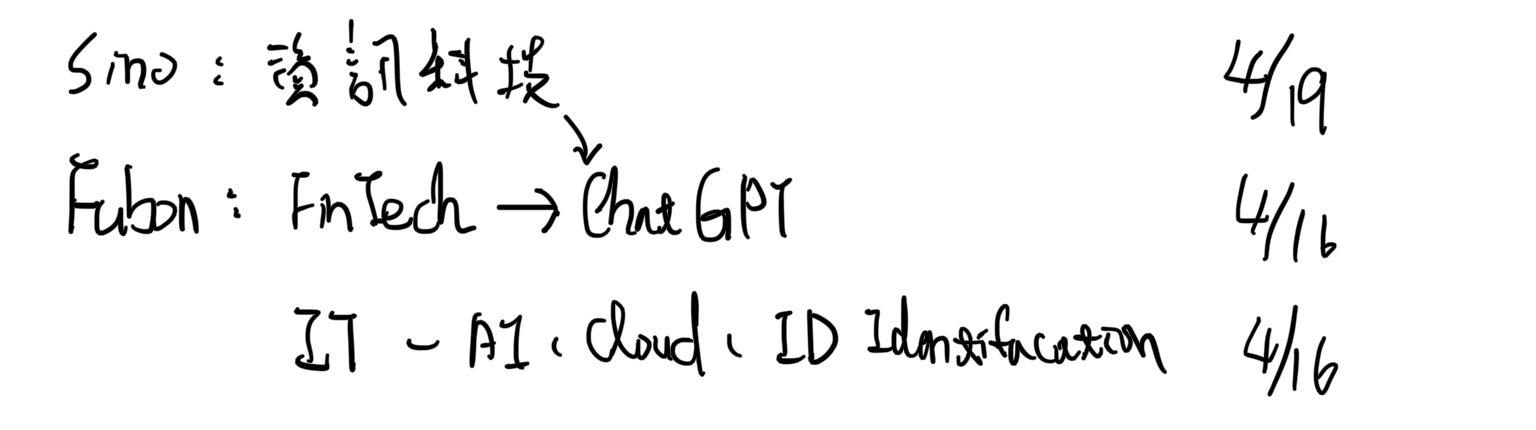 Sino：資訊科技 4/19
Fubon：FinTech → ChatGPT 4/16
IT - AI、Cloud、ID Identifacation 4/16